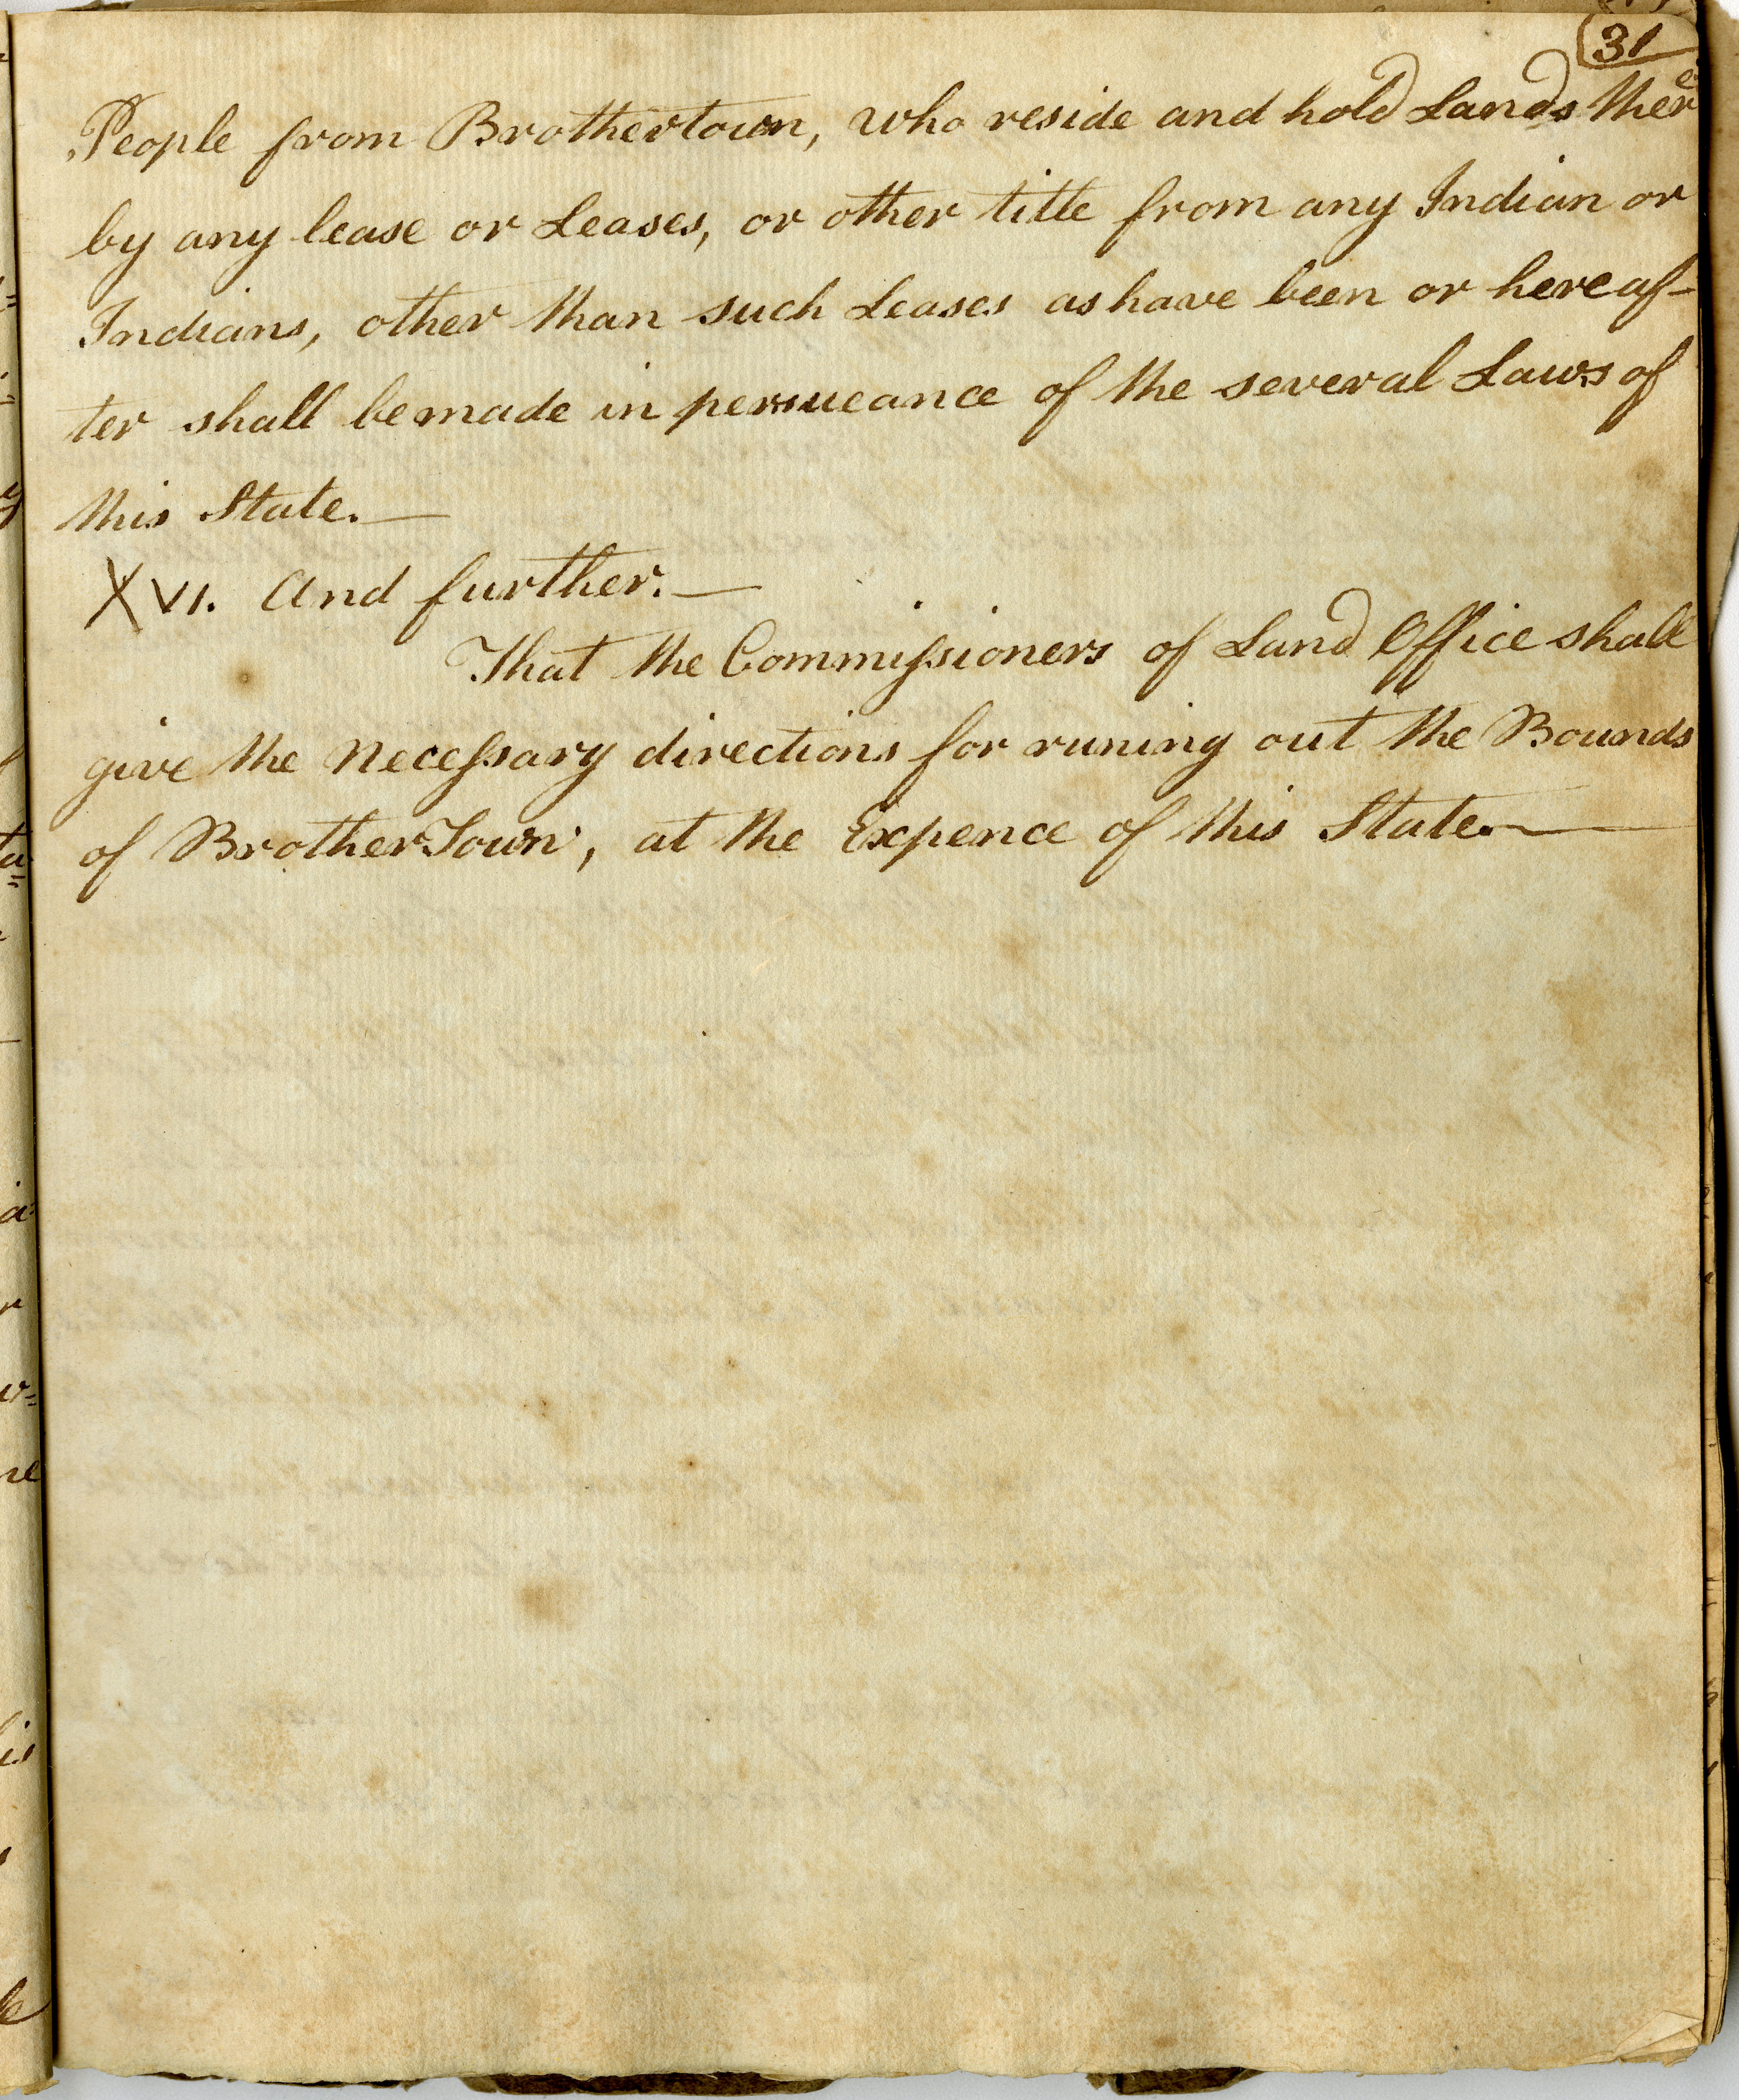 31
People from Brothertown, who reside and hold Lands there
by any lease or Leases, or other title from any Indian or
Indians, other than such Leases as have been or hereaf-
ter shall be made in persueance of the several Laws of
this State.—
XVI. And further.—
That the Commissioners of Land Office shall
give the Necessary directions for runing out the Bounds
of BrotherTown, at the Expence of this State.—